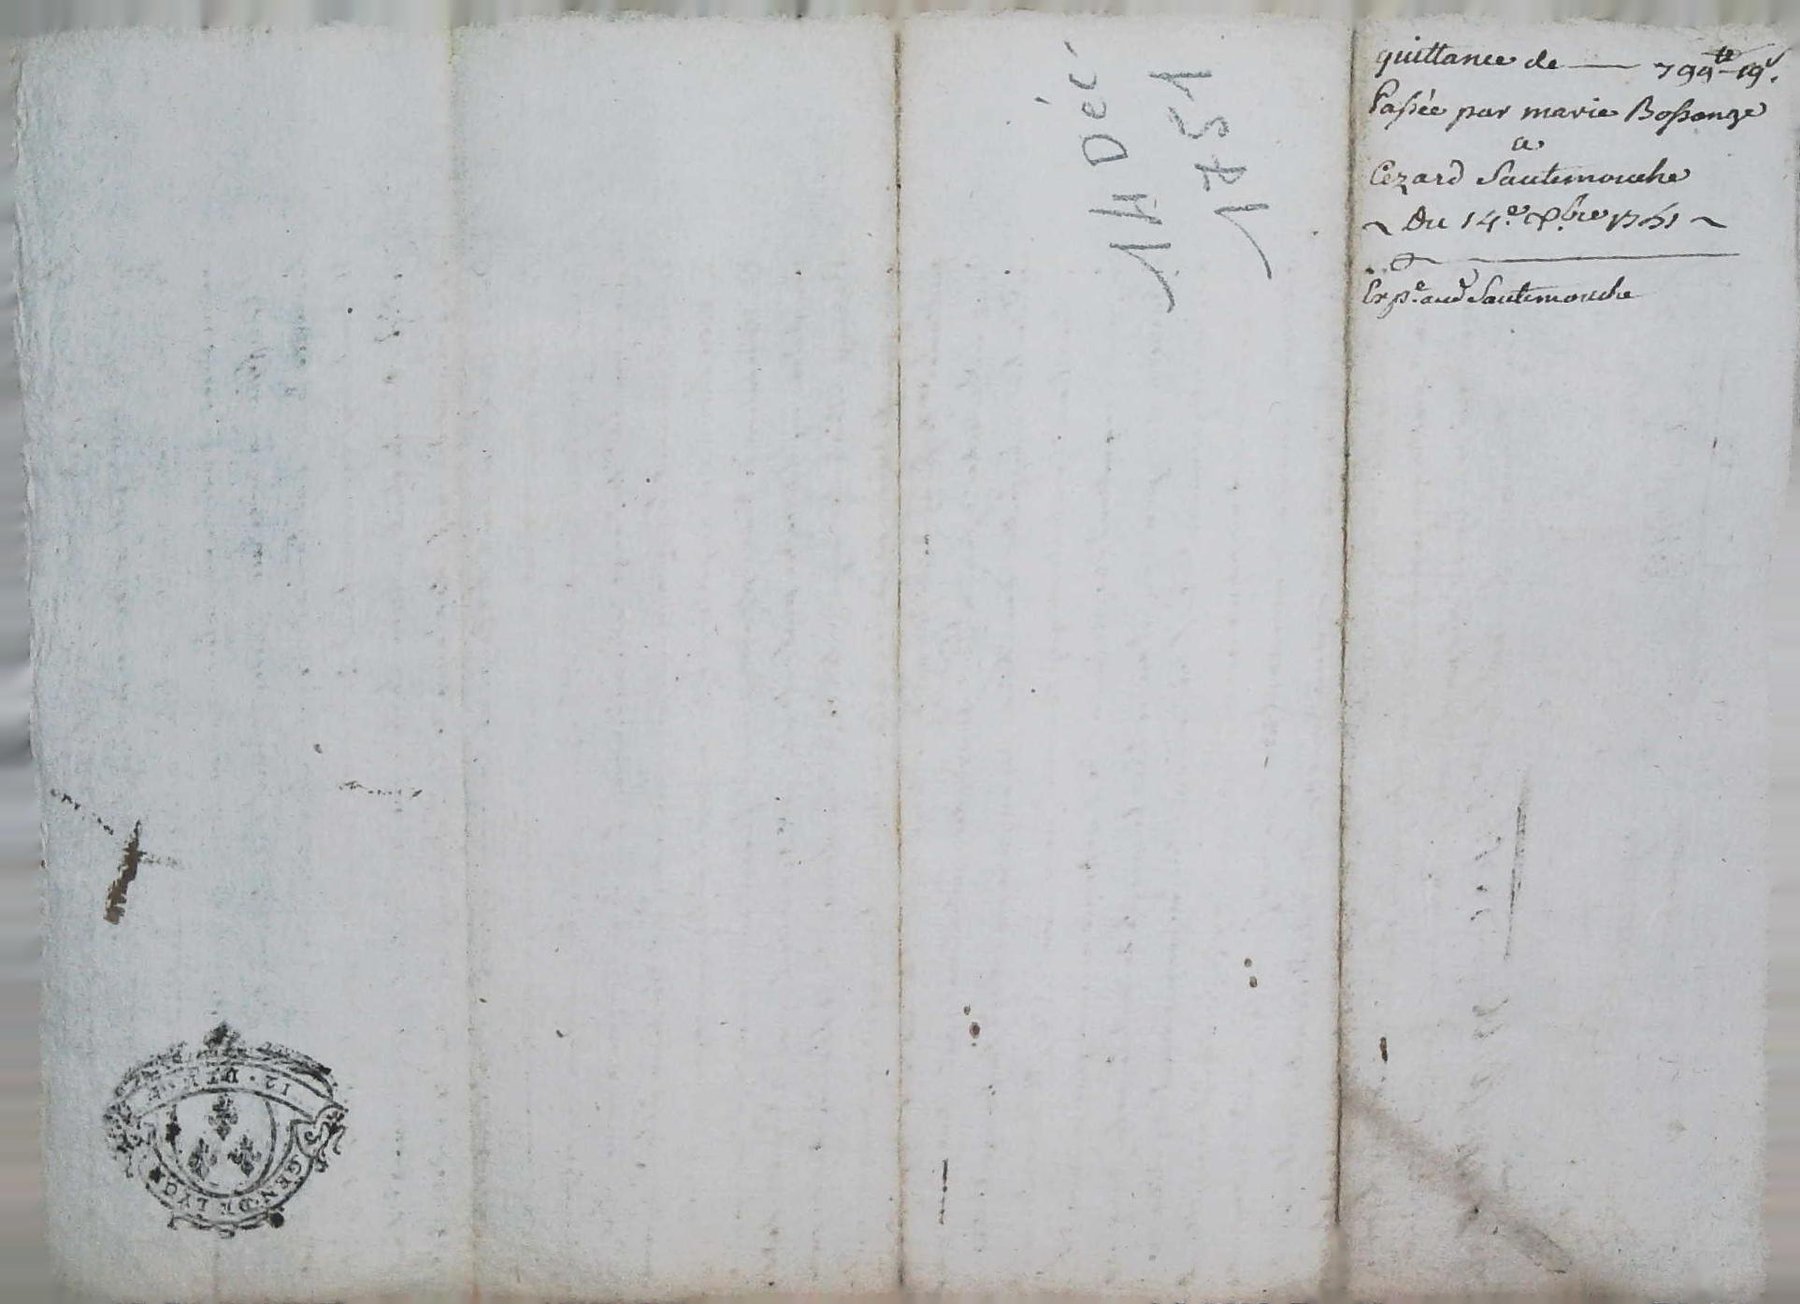 quittance de — 799ᵗᵗ-19ˢ.
Passée par marie Bossonge
a
Cezard Sautemouche
~ Du 14.ᵉ Xbre 1751 ~
Exp.ᵉ aud Sautemouche
14 Déc
1751
12 · DEN
GEN · DE LYON